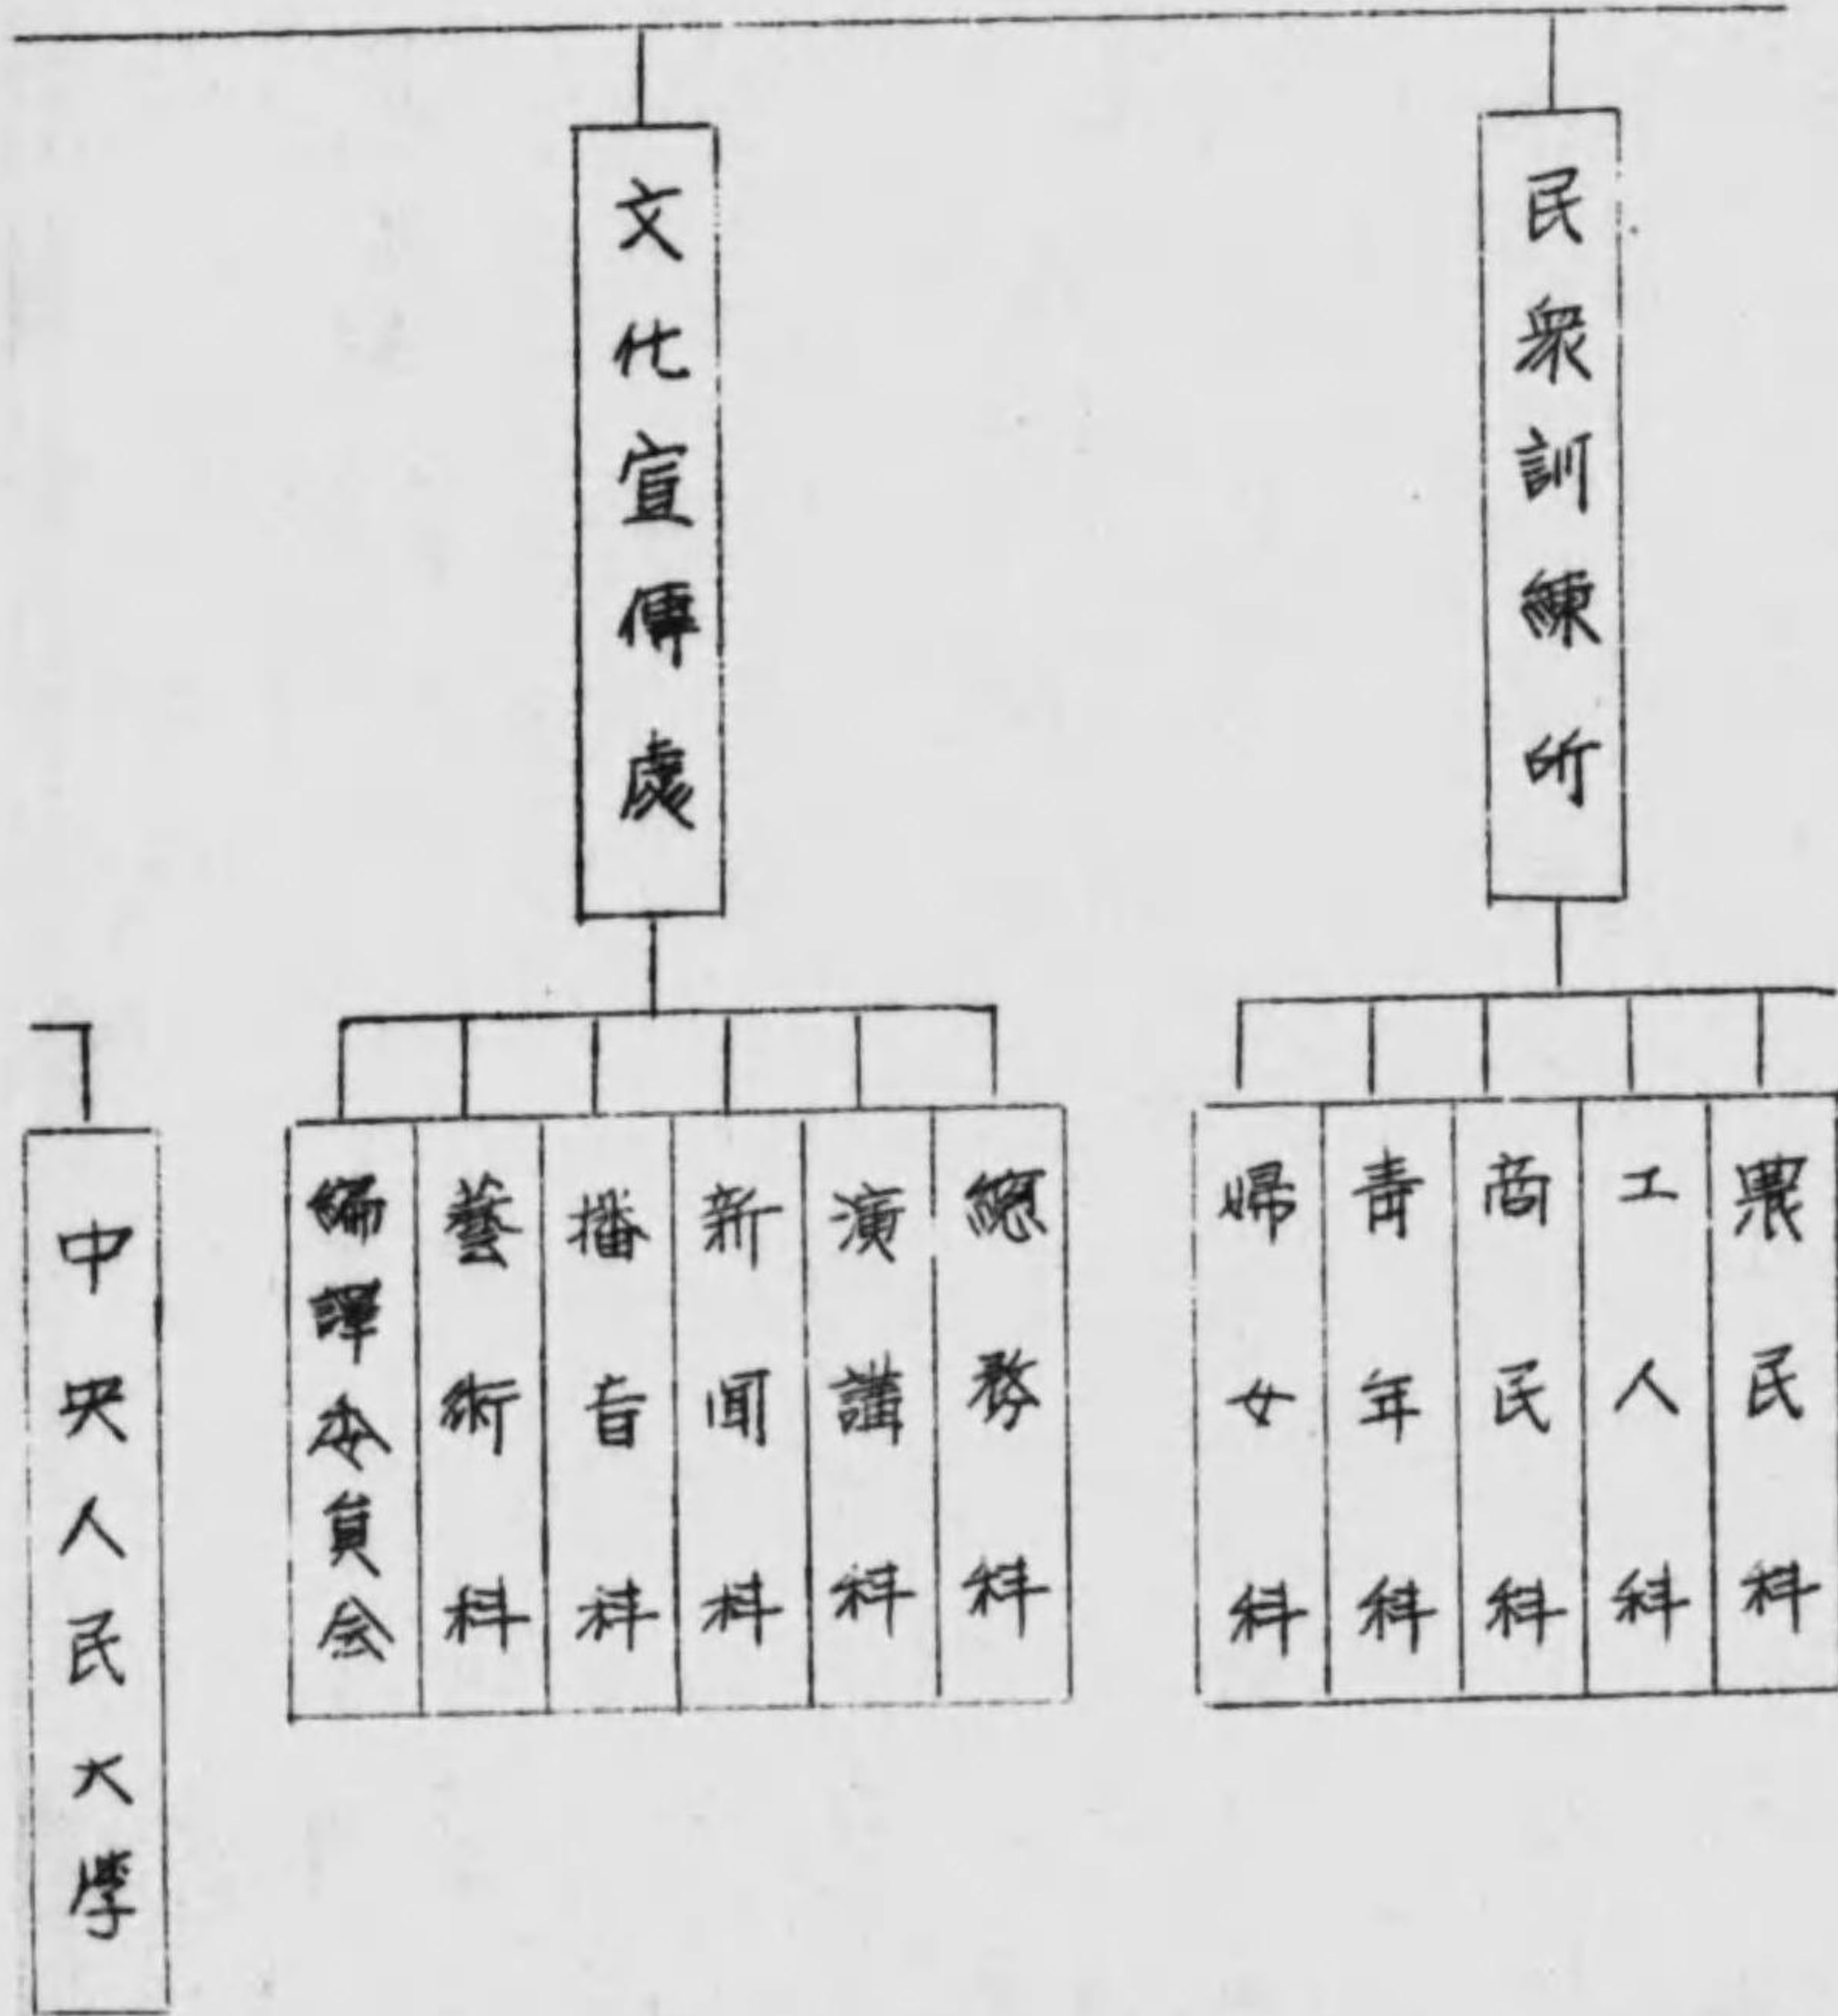 民衆訓練所
農民科
工人科
商民科
青年科
婦女科
文化宣傳處
總務科
演講科
新聞科
播音科
藝術科
編譯委員会
中央人民大學